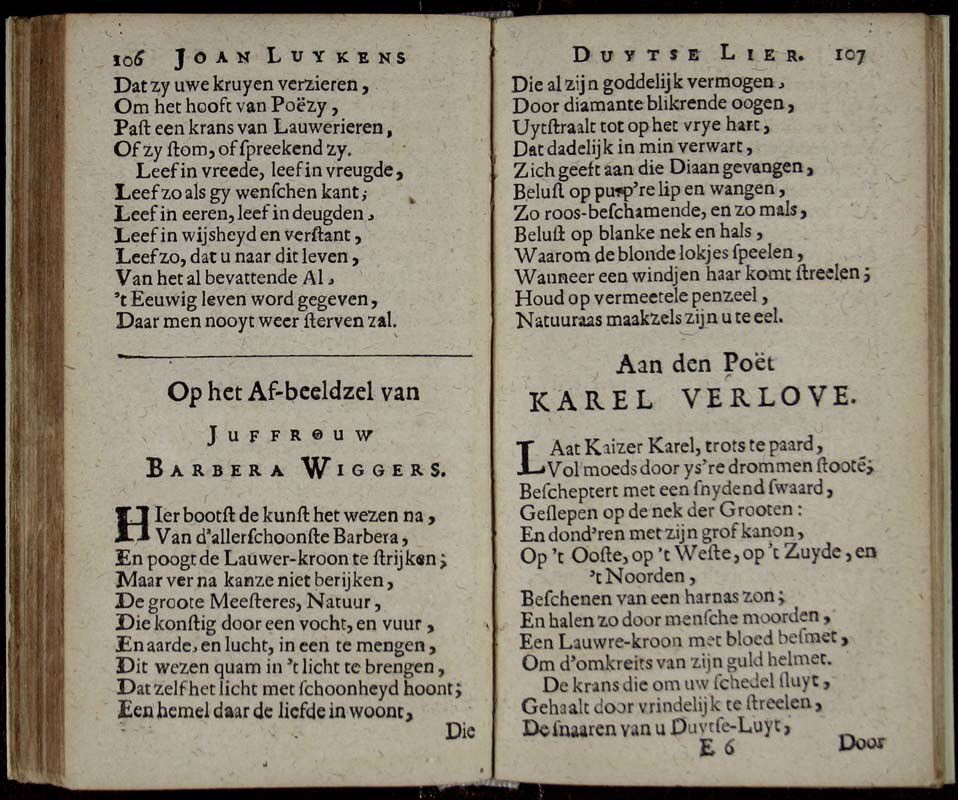 106 JOAN LUYKENS
Dat zy uwe kruyen verzieren,
Om het hooft van Poëzy,
Paſt een krans van Lauwerieren,
Of zy ſtom, of ſpreekend zy.
Leef in vreede, leef in vreugde,
Leef zo als gy wenſchen kant;
Leef in eeren, leef in deugden,
Leef in wijsheyd en verſtant,
Leef zo, dat u naar dit leven,
Van het al bevattende Al,
't Eeuwig leven word gegeven,
Daar men nooyt weer ſterven zal.
Op het Af-beeldzel van
JUFFROUW
BARBERA WIGGERS.
HIer bootſt de kunſt het wezen na,
Van d'allerſchoonſte Barbera,
En poogt de Lauwer-kroon te ſtrijken;
Maar ver na kanze niet berijken,
De groote Meeſteres, Natuur,
Die konſtig door een vocht, en vuur,
En aarde, en lucht, in een te mengen,
Dit wezen quam in 't licht te brengen,
Dat zelf het licht met ſchoonheyd hoont;
Een hemel daar de liefde in woont,
Die
DUYTSE LIER. 107
Die al zijn goddelijk vermogen,
Door diamante blikrende oogen,
Uytſtraalt tot op het vrye hart,
Dat dadelijk in min verwart,
Zich geeft aan die Diaan gevangen,
Beluſt op purp're lip en wangen,
Zo roos-beſchamende, en zo mals,
Beluſt op blanke nek en hals,
Waarom de blonde lokjes ſpeelen,
Wanneer een windjen haar komt ſtreelen;
Houd op vermeetele penzeel,
Natuuraas maakzels zijn u te eel.
Aan den Poët
KAREL VERLOVE.
LAat Kaizer Karel, trots te paard,
Vol moeds door ys're drommen ſtootē;
Beſcheptert met een ſnydend ſwaard,
Geſlepen op de nek der Grooten:
En dond'ren met zijn grof kanon,
Op 't Ooſte, op 't Weſte, op 't Zuyde, en
't Noorden,
Beſchenen van een harnas zon;
En halen zo door menſche moorden,
Een Lauwre-kroon met bloed beſmet,
Om d'omkreits van zijn guld helmet.
De krans die om uw ſchedel ſluyt,
Gehaalt door vrindelijk te ſtreelen,
De ſnaaren van u Duytſe-Luyt,
E 6 Door